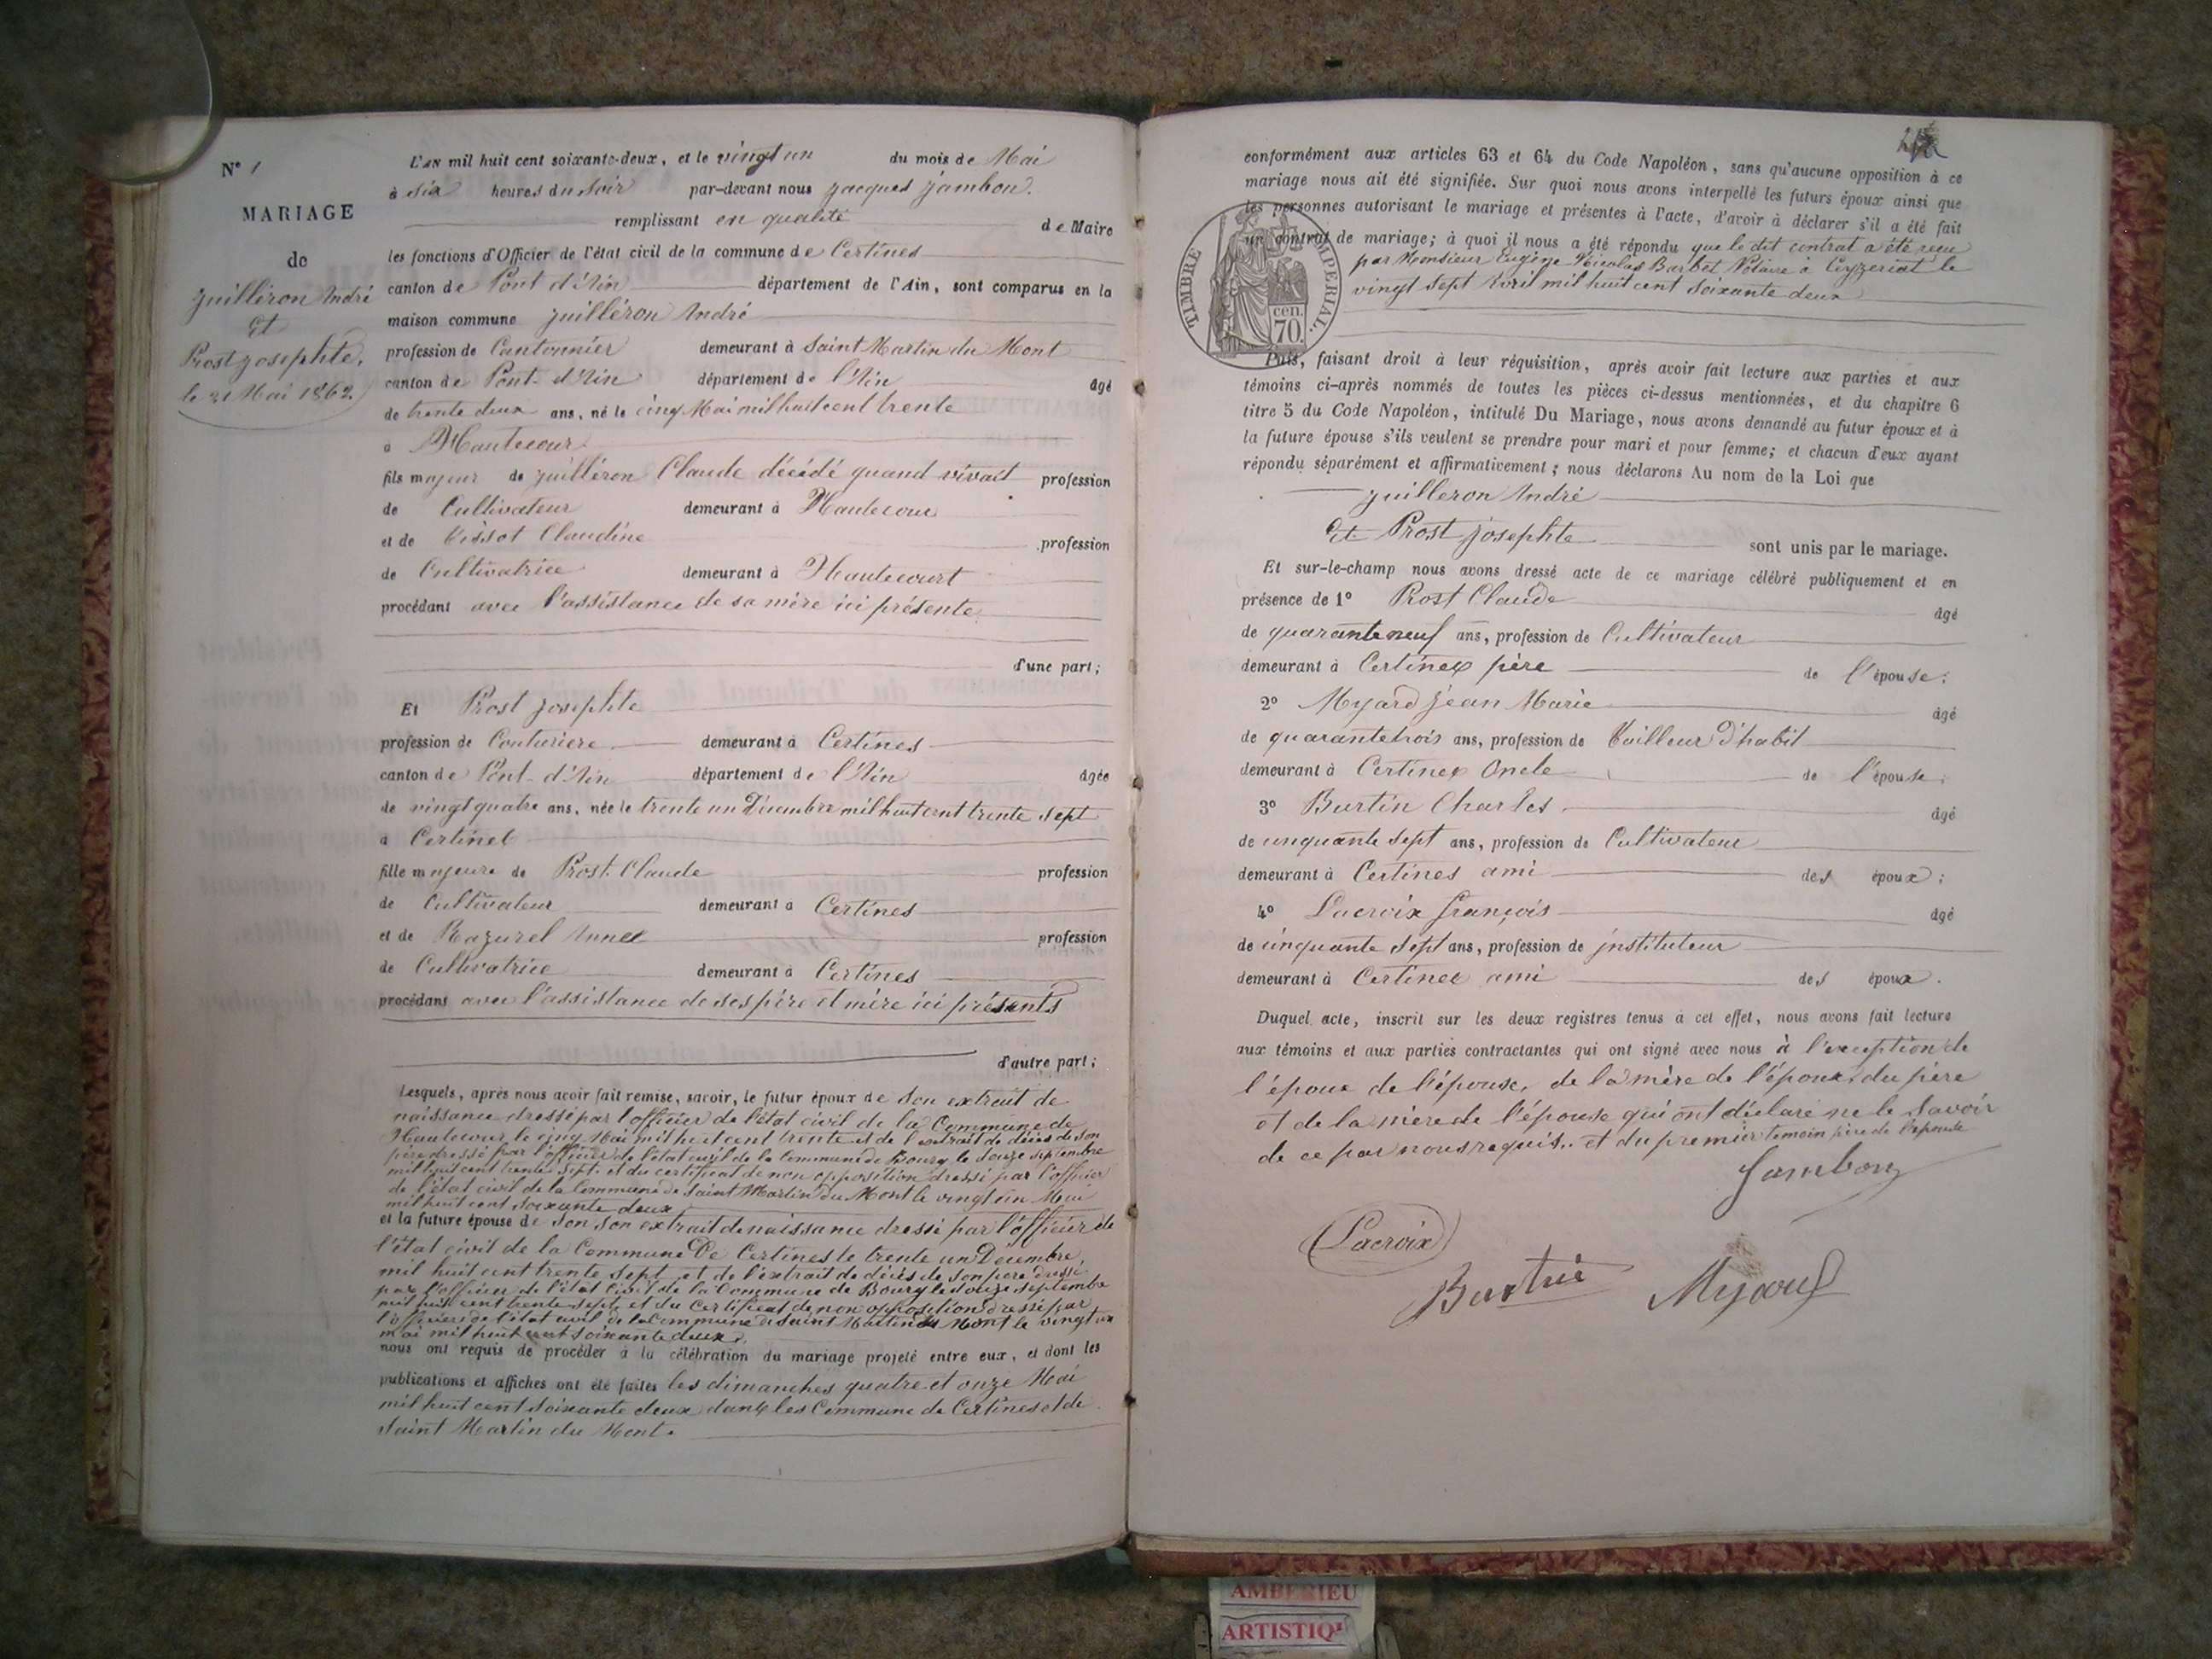 N° 1
MARIAGE
de
Juilléron André
et
Prost Josephte.
le 21 Mai 1862.
L'AN mil huit cent soixante-deux, et le vingt un du mois de Mai
à six heures du soir par-devant nous Jacques Jambon.
remplissant en qualité de Maire
les fonctions d'Officier de l'état civil de la commune de Certines
canton de Pont d'Ain département de l'Ain, sont comparus en la
maison commune Juilléron André
profession de Cantonnier demeurant à Saint Martin du Mont
canton de Pont-d'Ain département de l'Ain âgé
de trente deux ans, né le cinq Mai mil huit cent trente
à Hautecour
fils majeur de Juilléron Claude décédé quand vivait profession
de Cultivateur demeurant à Hautecour
et de Tissot Claudine profession
de Cultivatrice demeurant à Hautecourt
procédant avec l'assistance de sa mère ici présente
d'une part;
Et Prost Josephte
profession de Couturière demeurant à Certines
canton de Pont-d'Ain département de l'Ain âgée
de vingt quatre ans, née le trente un Décembre mil huit cent trente sept
à Certines
fille majeure de Prost Claude profession
de Cultivateur demeurant à Certines
et de Razurel Anne profession
de Cultivatrice demeurant à Certines
procédant avec l'assistance de ses père et mère ici présents
d'autre part;
Lesquels, après nous avoir fait remise, savoir, le futur époux de Son extrait de
naissance dressé par l'officier de l'état civil de la Commune de
Hautecour le cinq Mai mil huit cent trente et de l'extrait de décès de son
père dressé par l'officier de l'état civil de la Commune de Bourg le douze septembre
mil huit cent trente sept. et du certificat de non opposition dressé par l'officier
de l'état civil de la Commune de Saint Martin du Mont le vingt un Mai
mil huit cent soixante deux
et la future épouse de Son son extrait de naissance dressé par l'officier de
l'état civil de la Commune De Certines le trente un Décembre
mil huit cent trente sept et de l'extrait de décès de son père dressé
par l'officier de l'état civil de la Commune de Bourg le douze septembre
mil huit cent trente sept et du certificat de non opposition dressé par
l'officier de l'état civil de la Commune de Saint Martin du Mont le vingt un
mai mil huit cent soixante deux.
nous ont requis de procéder à la célébration du mariage projeté entre eux, et dont les
publications et affiches ont été faites les dimanches quatre et onze Mai
mil huit cent soixante deux dans les Commune de Certines et de
Saint Martin du Mont.
conformément aux articles 63 et 64 du Code Napoléon, sans qu'aucune opposition à ce
mariage nous ait été signifiée. Sur quoi nous avons interpellé les futurs époux ainsi que
les personnes autorisant le mariage et présentes à l'acte, d'avoir à déclarer s'il a été fait
un contrat de mariage; à quoi il nous a été répondu que le dit contrat a été reçu
par Monsieur Eugène Nicolas Barbet Notaire à Ceyzeriat le
vingt sept Avril mil huit cent soixante deux
TIMBRE IMPERIAL.
cen.
70.
Puis, faisant droit à leur réquisition, après avoir fait lecture aux parties et aux
témoins ci-après nommés de toutes les pièces ci-dessus mentionnées, et du chapitre 6
titre 5 du Code Napoléon, intitulé Du Mariage, nous avons demandé au futur époux et à
la future épouse s'ils veulent se prendre pour mari et pour femme; et chacun d'eux ayant
répondu séparément et affirmativement; nous déclarons Au nom de la Loi que
Juilleron André
Et Prost Josephte sont unis par le mariage.
Et sur-le-champ nous avons dressé acte de ce mariage célébré publiquement et en
présence de 1° Prost Claude âgé
de quarante neuf ans, profession de Cultivateur
demeurant à Certines père de l'épouse;
2° Myard Jean Marie âgé
de quarante trois ans, profession de Tailleur d'habit
demeurant à Certines Oncle de l'épouse;
3° Burtin Charles âgé
de cinquante sept ans, profession de Cultivateur
demeurant à Certines ami des époux;
4° Lacroix françois âgé
de cinquante sept ans, profession de instituteur
demeurant à Certines ami des époux.
Duquel acte, inscrit sur les deux registres tenus à cet effet, nous avons fait lecture
aux témoins et aux parties contractantes qui ont signé avec nous à l'exception de
l'époux de l'épouse, de la mère de l'époux, du père
et de la mère de l'épouse qui ont déclaré ne le savoir
de ce par nous requis. et du premier témoin père de l'épouse
Jambon
Lacroix
Burtin Myard
AMBERIEU
ARTISTIQ